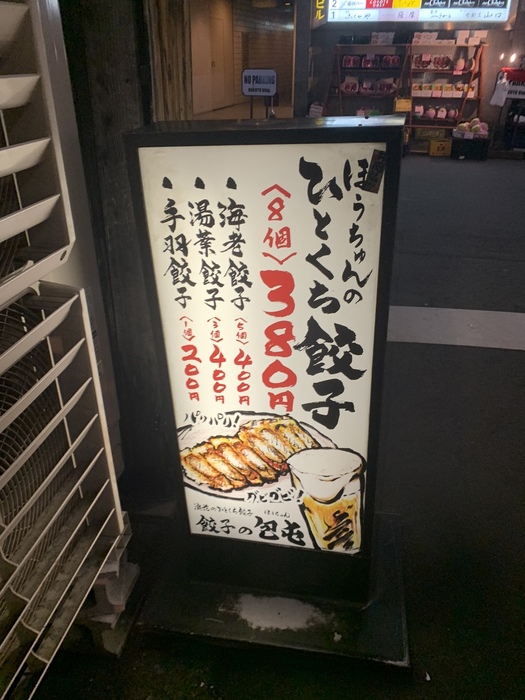 ほうちゅんの
ひとくち餃子
〈8個〉380円
・海老餃子〈5個〉400円
・湯葉餃子〈3個〉400円
・手羽餃子〈1個〉200円
パリパリ!
グビグビ!
餃子の包屯
NO PARKING
ビル
2
1